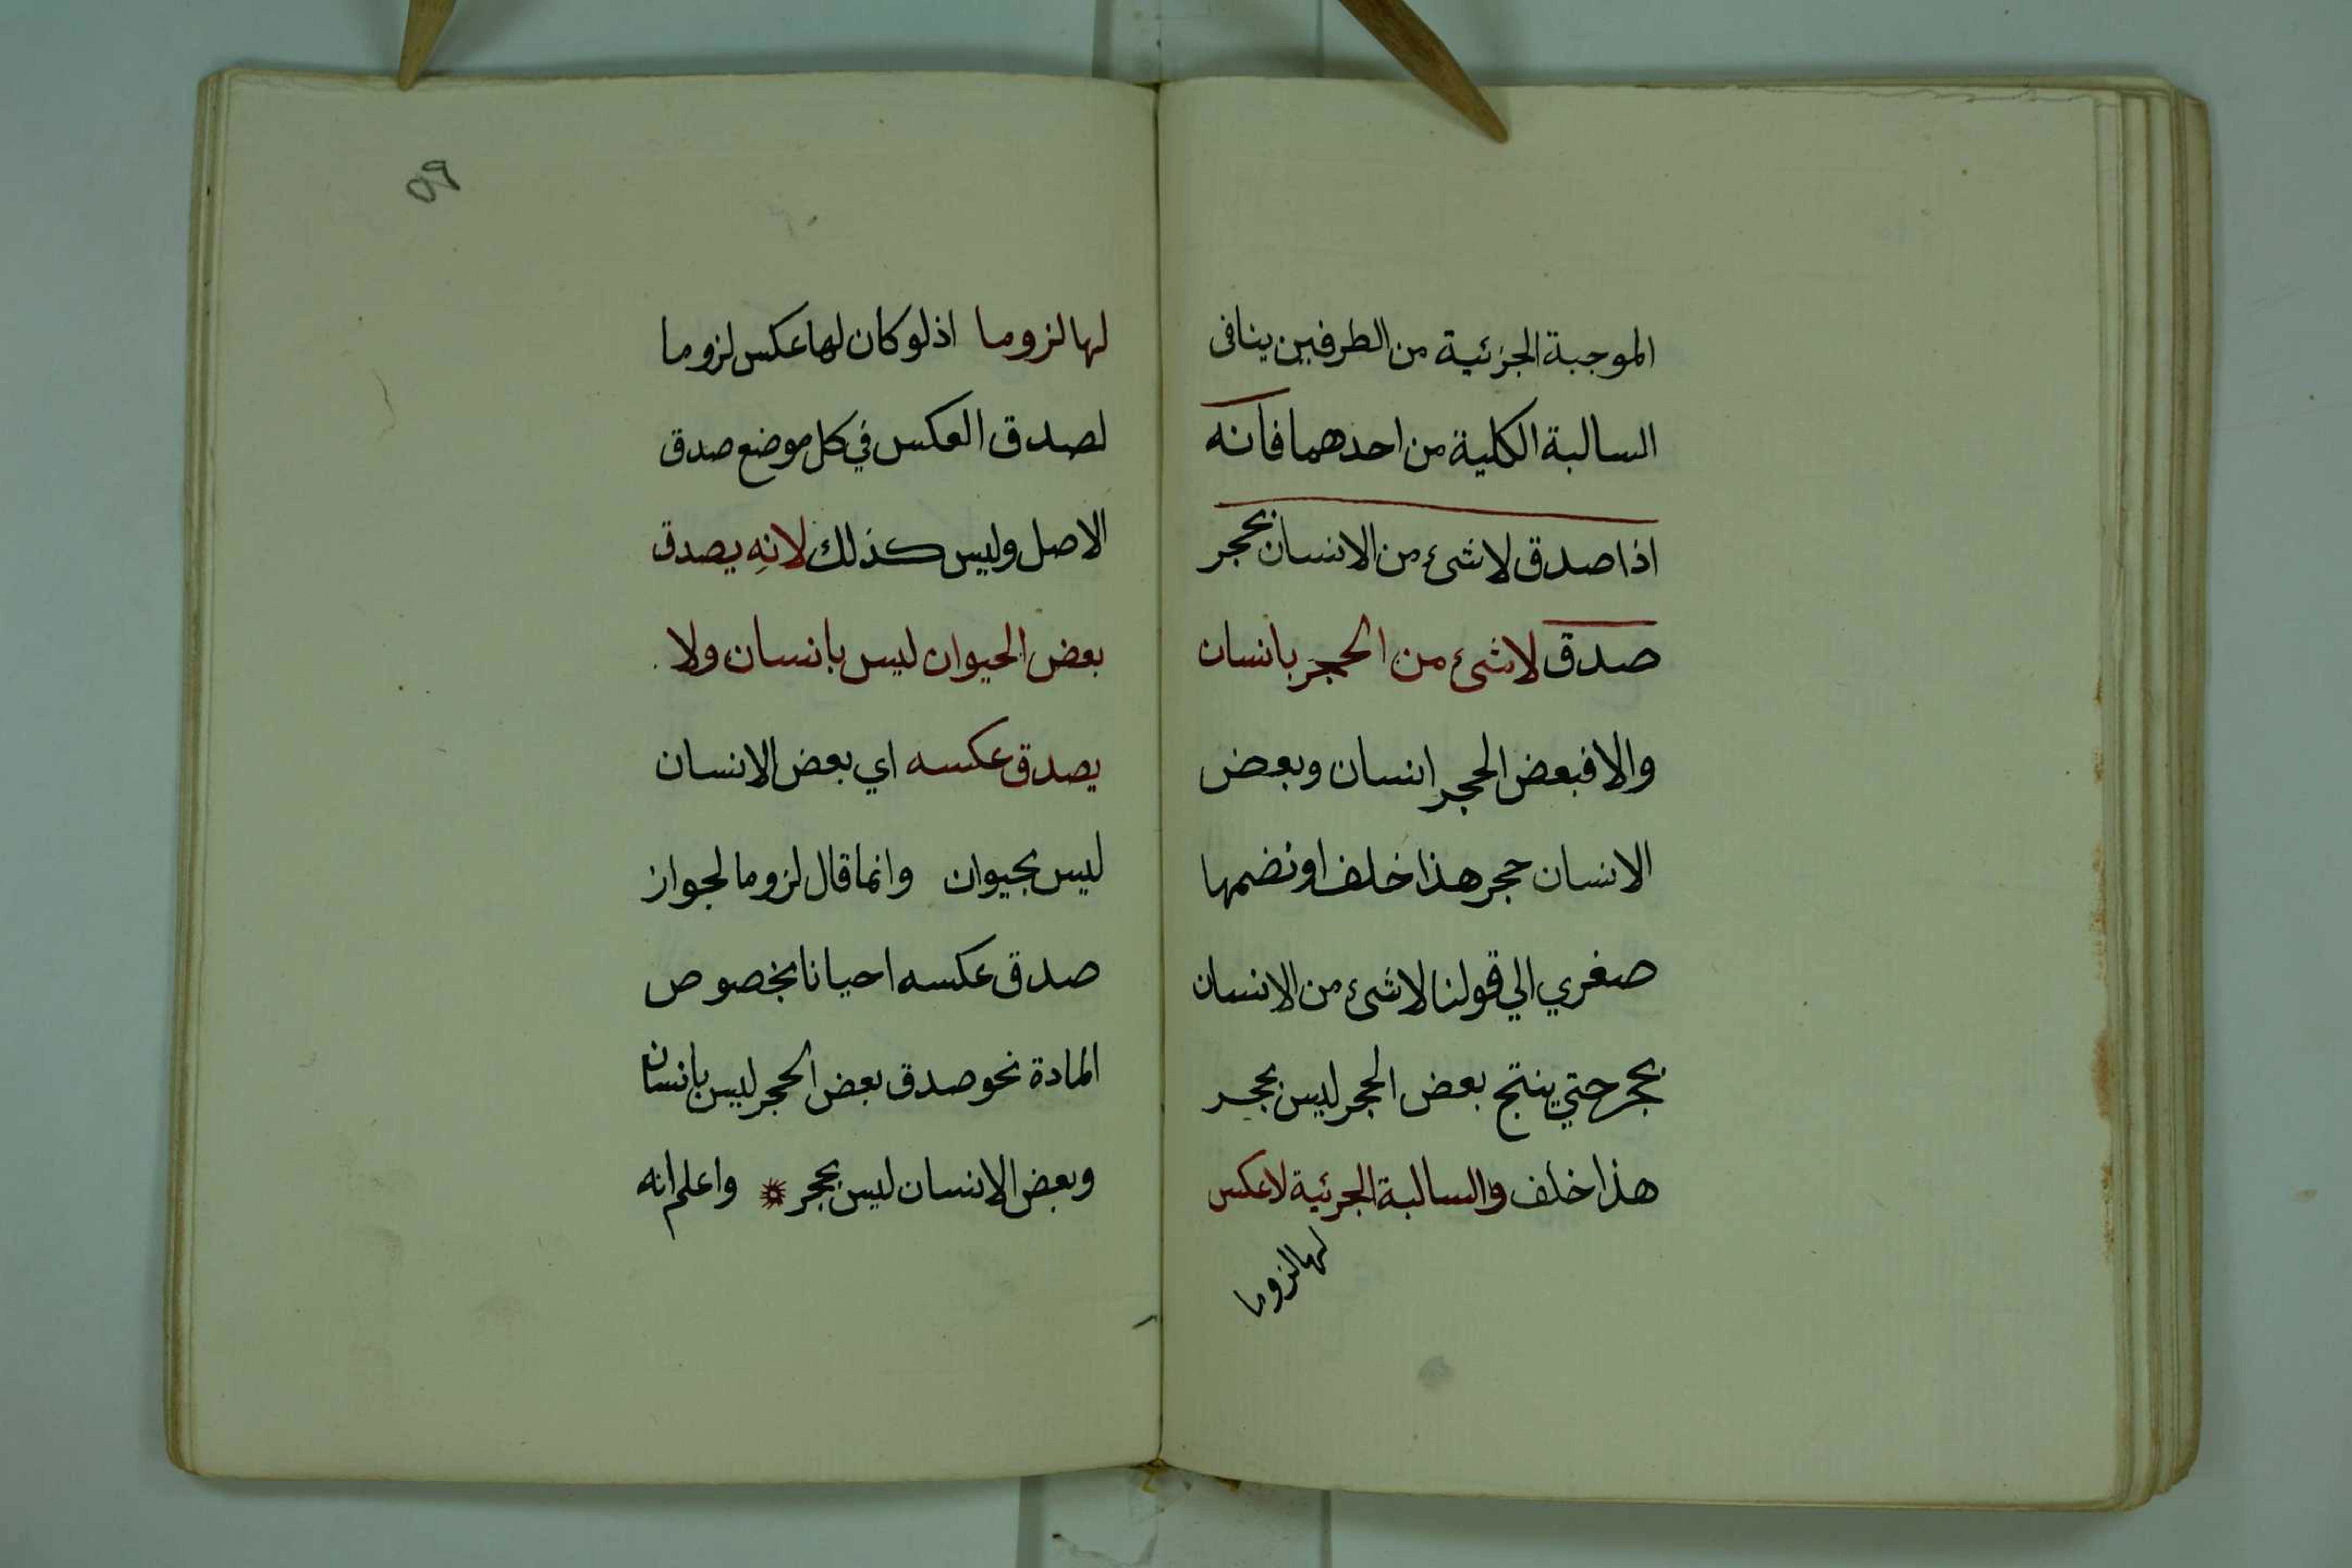 الموجبة الجزئية من الطرفين ينافى
السالبة الكلية من احدهما فانه
اذا صدق لا شئ من الانسان بحجر
صدق لا شئ من الحجر بانسان
والا فبعض الحجر انسان وبعض
الانسان حجر هذا خلف او نضمها
صغري الي قولنا لا شئ من الانسان
بحجر حتي ينتج بعض الحجر ليس بحجر
هذا خلف والسالبة الجزئية لا عكس
لها لزوما
٥٩
لها لزوما اذ لو كان لها عكس لزوما
لصدق العكس في كل موضع صدق
الاصل وليس كذلك لانه يصدق
بعض الحيوان ليس بانسان ولا
يصدق عكسه اي بعض الانسان
ليس بحيوان وانما قال لزوما لجواز
صدق عكسه احيانا بخصوص
المادة نحو صدق بعض الحجر ليس بانسان
وبعض الانسان ليس بحجر واعلم انه